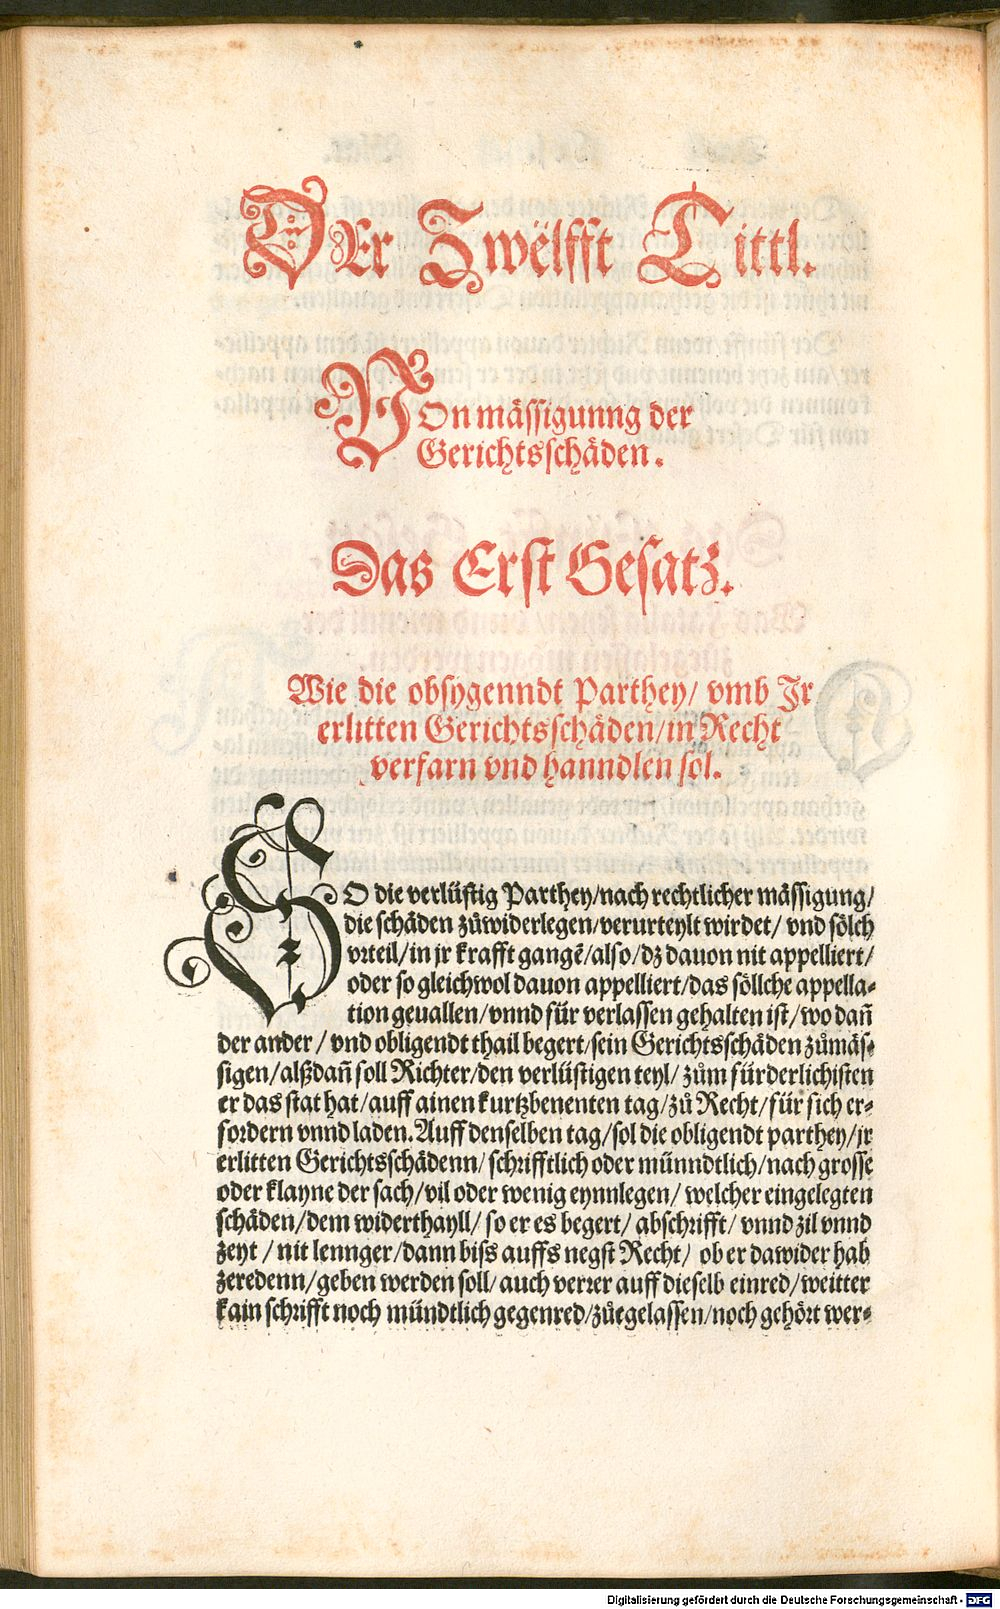 DEr Zwëlfft Tittl.
VOn mässigunng der
Gerichtsschäden.
Das Erst Gesatz.
Wie die obsygenndt Parthey/ vmb Jr
erlitten Gerichtsschäden/in Recht
verfarn vnd hanndlen sol.
SO die verlüstig Parthey/nach rechtlicher mässigung/
die schäden zůwiderlegen/verurteylt wirdet/ vnd sölch
vrteil/in jr krafft gangē/also/dz dauon nit appelliert/
oder so gleichwol dauon appelliert/das söllche appella-
tion geuallen/vnnd für verlassen gehalten ist/wo dañ
der ander/ vnd obligendt thail begert/sein Gerichtsschäden zůmäs-
sigen/alßdañ soll Richter/den verlüstigen teyl/ zům fürderlichisten
er das stat hat/auff ainen kurtzbenenten tag/zů Recht/für sich er-
fordern vnnd laden. Auff denselben tag/sol die obligendt parthey/jr
erlitten Gerichtsschädenn/schrifftlich oder münndtlich/nach grosse
oder klayne der sach/vil oder wenig eynnlegen/ welcher eingelegten
schäden/dem widerthayll/ so er es begert/ abschrifft/ vnnd zil vnnd
zeyt/nit lennger/dann biss auffs negst Recht/ ob er dawider hab
zeredenn/geben werden soll/auch verrer auff dieselb einred/weitter
kain schrifft noch mündtlich gegenred/zůegelassen/noch gehört wer-
Digitalisierung gefördert durch die Deutsche Forschungsgemeinschaft - DFG